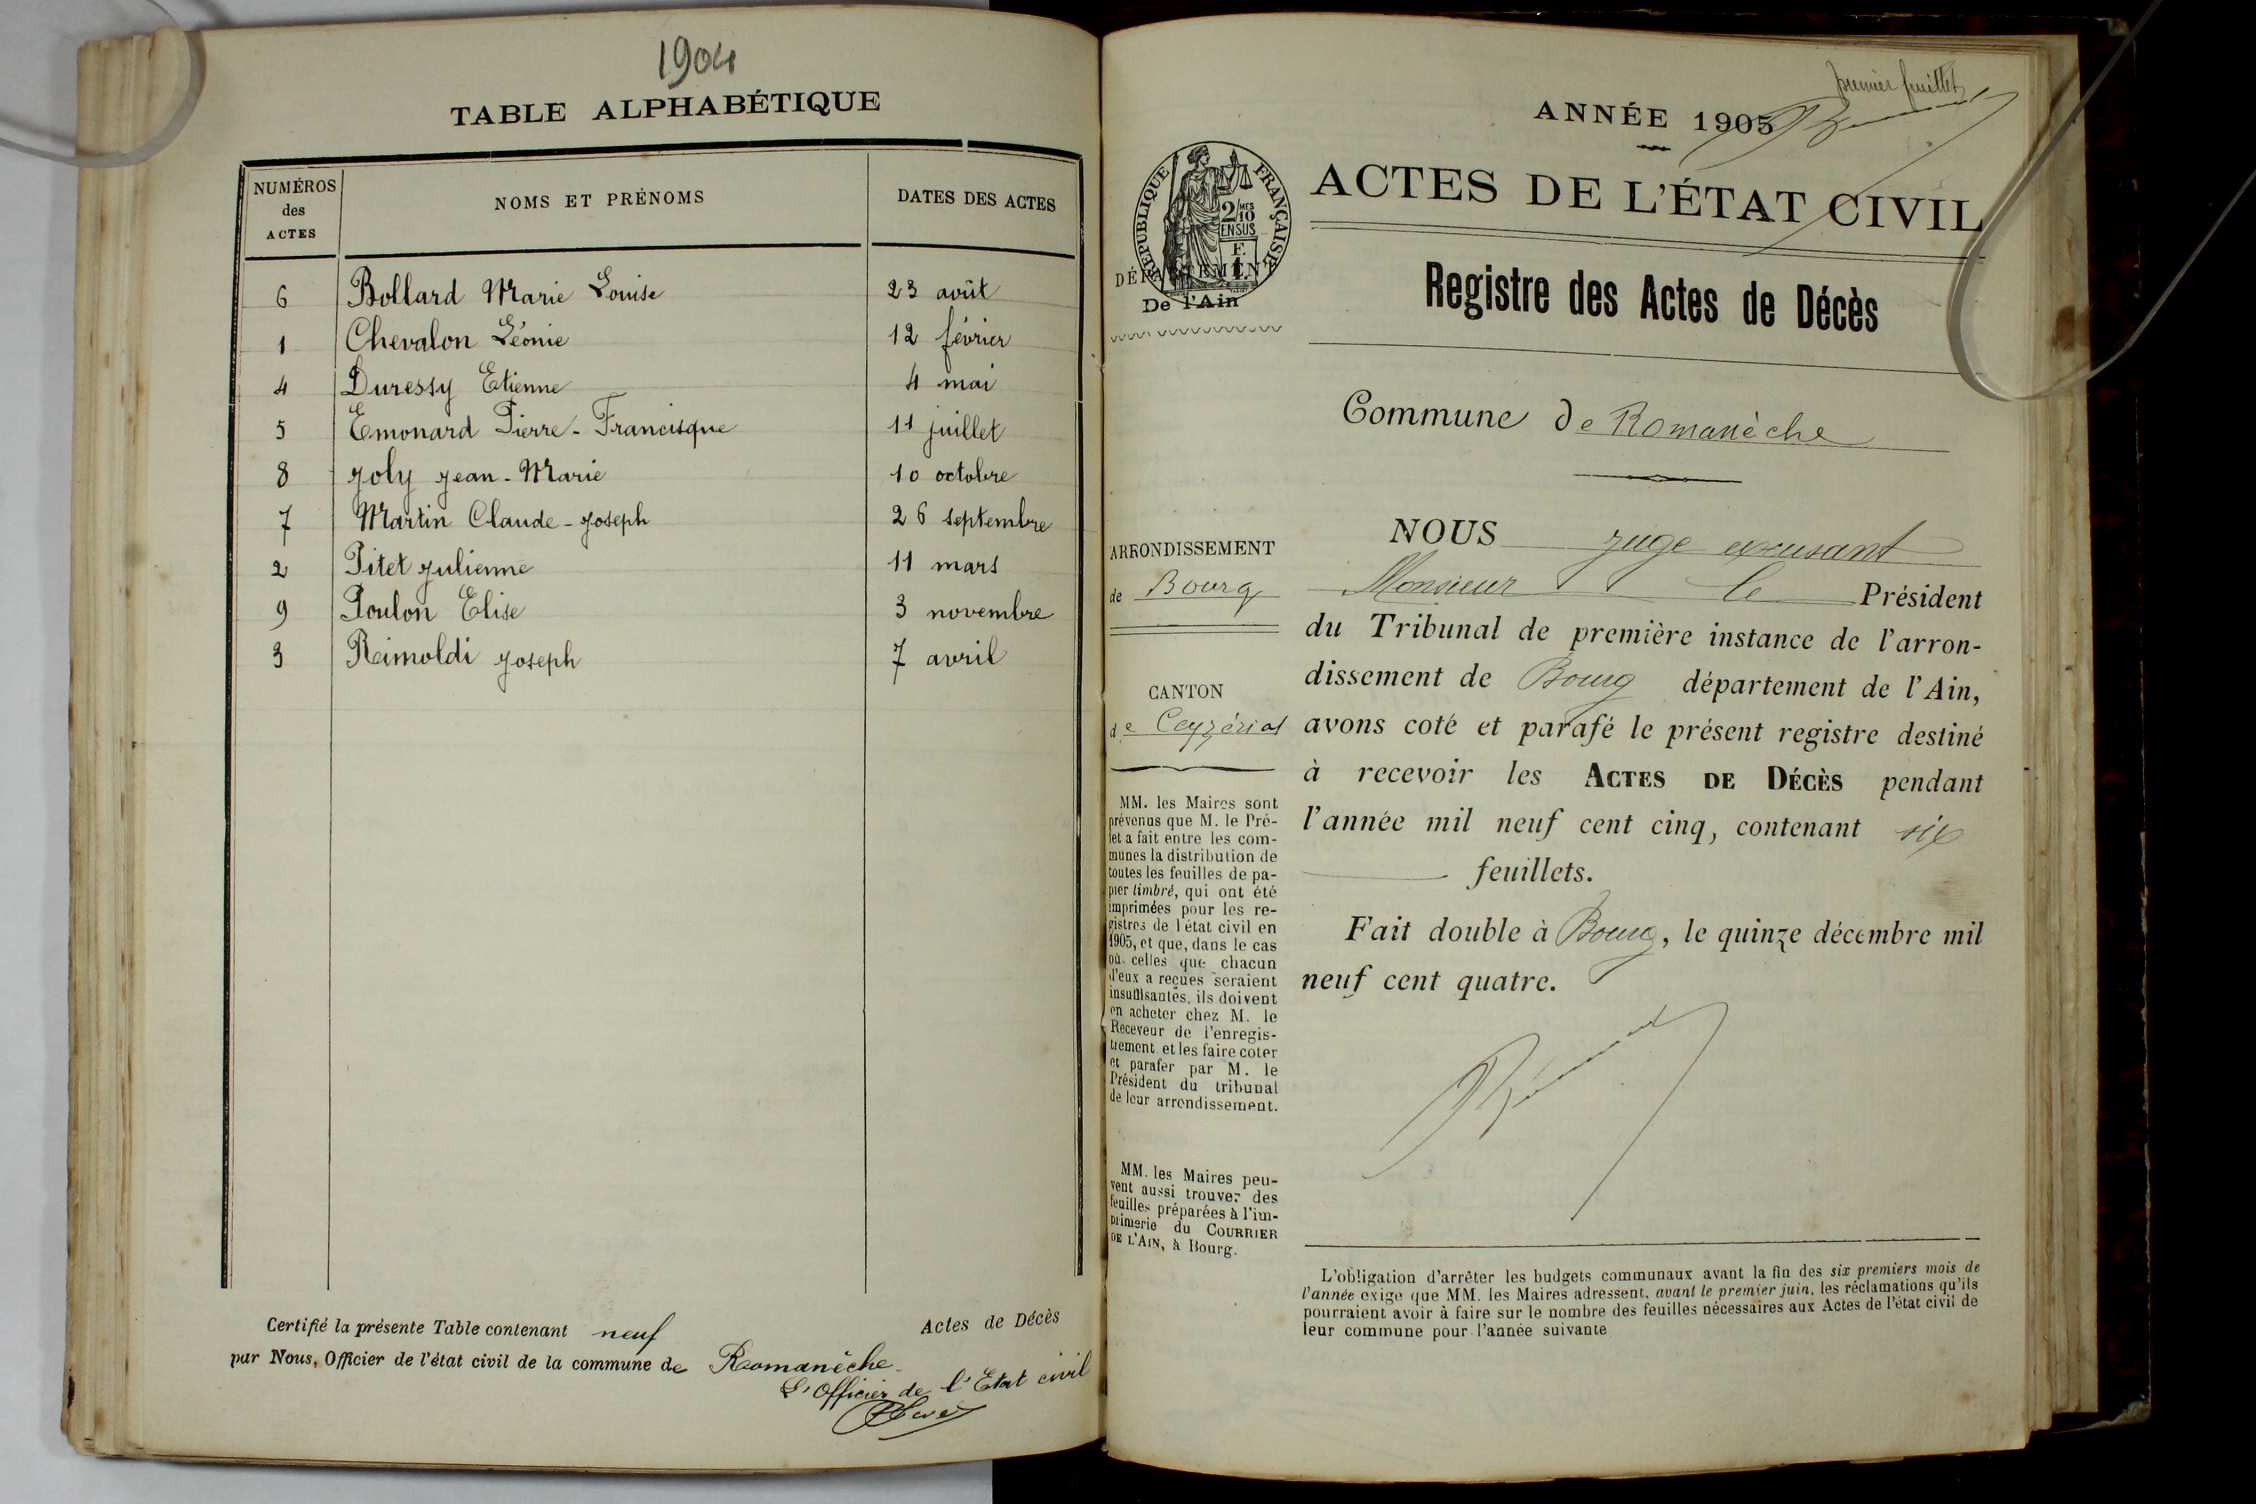 1904
TABLE ALPHABÉTIQUE
NUMÉROS
des
ACTES
NOMS ET PRÉNOMS
DATES DES ACTES
6 Bollard Marie Louise 23 août
1 Chevalon Léonie 12 février
4 Duressy Etienne 4 mai
5 Emonard Pierre-Francisque 11 juillet
8 Joly Jean-Marie 10 octobre
7 Martin Claude-Joseph 26 septembre
2 Pitet Julienne 11 mars
9 Poulon Elise 3 novembre
3 Reimoldi Joseph 7 avril
Certifié la présente Table contenant neuf Actes de Décès
par Nous, Officier de l'état civil de la commune de Romanèche
L'Officier de l'Etat civil
premier feuillet
ANNÉE 1905
ACTES DE L'ÉTAT CIVIL
RÉPUBLIQUE FRANÇAISE
2/10 MES
EN SUS
F
1
DÉPARTEMENT
De l'Ain
Registre des Actes de Décès
Commune de Romanèche
ARRONDISSEMENT
de Bourg
CANTON
de Ceyzériat
MM. les Maires sont
prévenus que M. le Pré-
fet a fait entre les com-
munes la distribution de
toutes les feuilles de pa-
pier timbré, qui ont été
imprimées pour les re-
gistres de l'état civil en
1905, et que, dans le cas
où celles que chacun
d'eux a reçues seraient
insuffisantes, ils doivent
en acheter chez M. le
Receveur de l'enregis-
trement et les faire coter
et parafer par M. le
Président du tribunal
de leur arrondissement.
MM. les Maires peu-
vent aussi trouver des
feuilles préparées à l'im-
primerie du COURRIER
DE L'AIN, à Bourg.
NOUS juge excusant
Monsieur le Président
du Tribunal de première instance de l'arron-
dissement de Bourg département de l'Ain,
avons coté et parafé le présent registre destiné
à recevoir les ACTES DE DÉCÈS pendant
l'année mil neuf cent cinq, contenant six
feuillets.
Fait double à Bourg, le quinze décembre mil
neuf cent quatre.
L'obligation d'arrêter les budgets communaux avant la fin des six premiers mois de
l'année exige que MM. les Maires adressent, avant le premier juin, les réclamations qu'ils
pourraient avoir à faire sur le nombre des feuilles nécessaires aux Actes de l'état civil de
leur commune pour l'année suivante